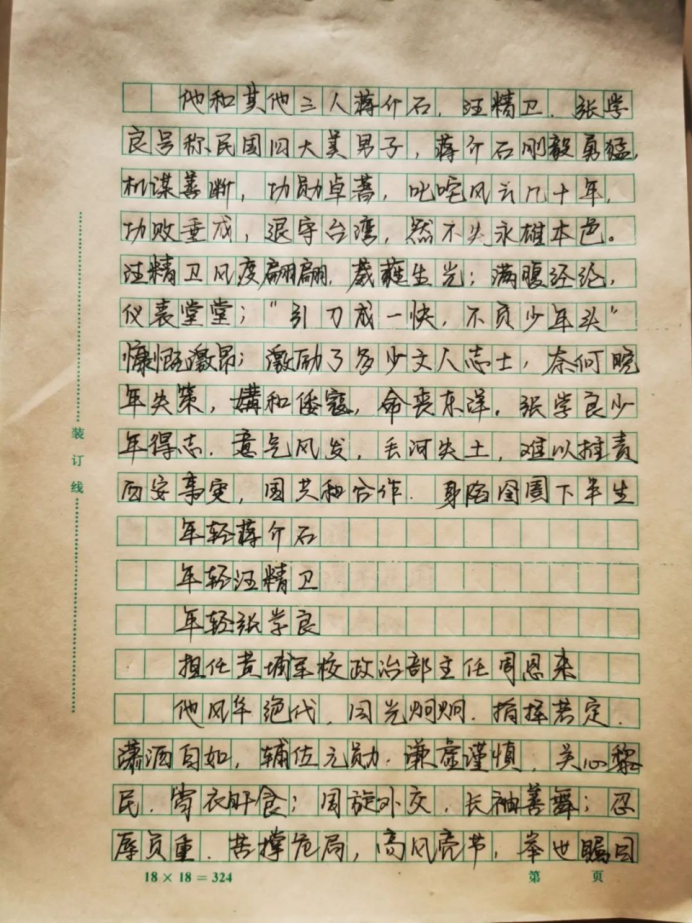 他和其他三人蒋介石，汪精卫．张学
良号称民国四大美男子，蒋介石刚毅勇猛，
机谋善断，功勋卓著，叱咤风云几十年，
功败垂成，退守台湾，然不失永雄本色。
汪精卫风度翩翩．葳蕤生光；满腹经纶，
仪表堂堂；“引刀成一快，不负少年头”
慷慨激昂；激励了多少文人志士，奈何晚
年失策，媾和倭寇，命丧东洋．张学良少
年得志．意气风发，丢河失土，难以推责
西安事变，国共和合作．身陷囹圄下半生
年轻蒋介石
年轻汪精卫
年轻张学良
担任黄埔军校政治部主任周恩来
他风华绝代．目光炯炯．指挥若定．
潇洒自如，辅佐元勋．谦虚谨慎．关心黎
民．宵衣旰食；周旋外交．长袖善舞；忍
辱负重．苦撑危局，高风亮节，举世瞩目
装订线
18×18＝324
第 页